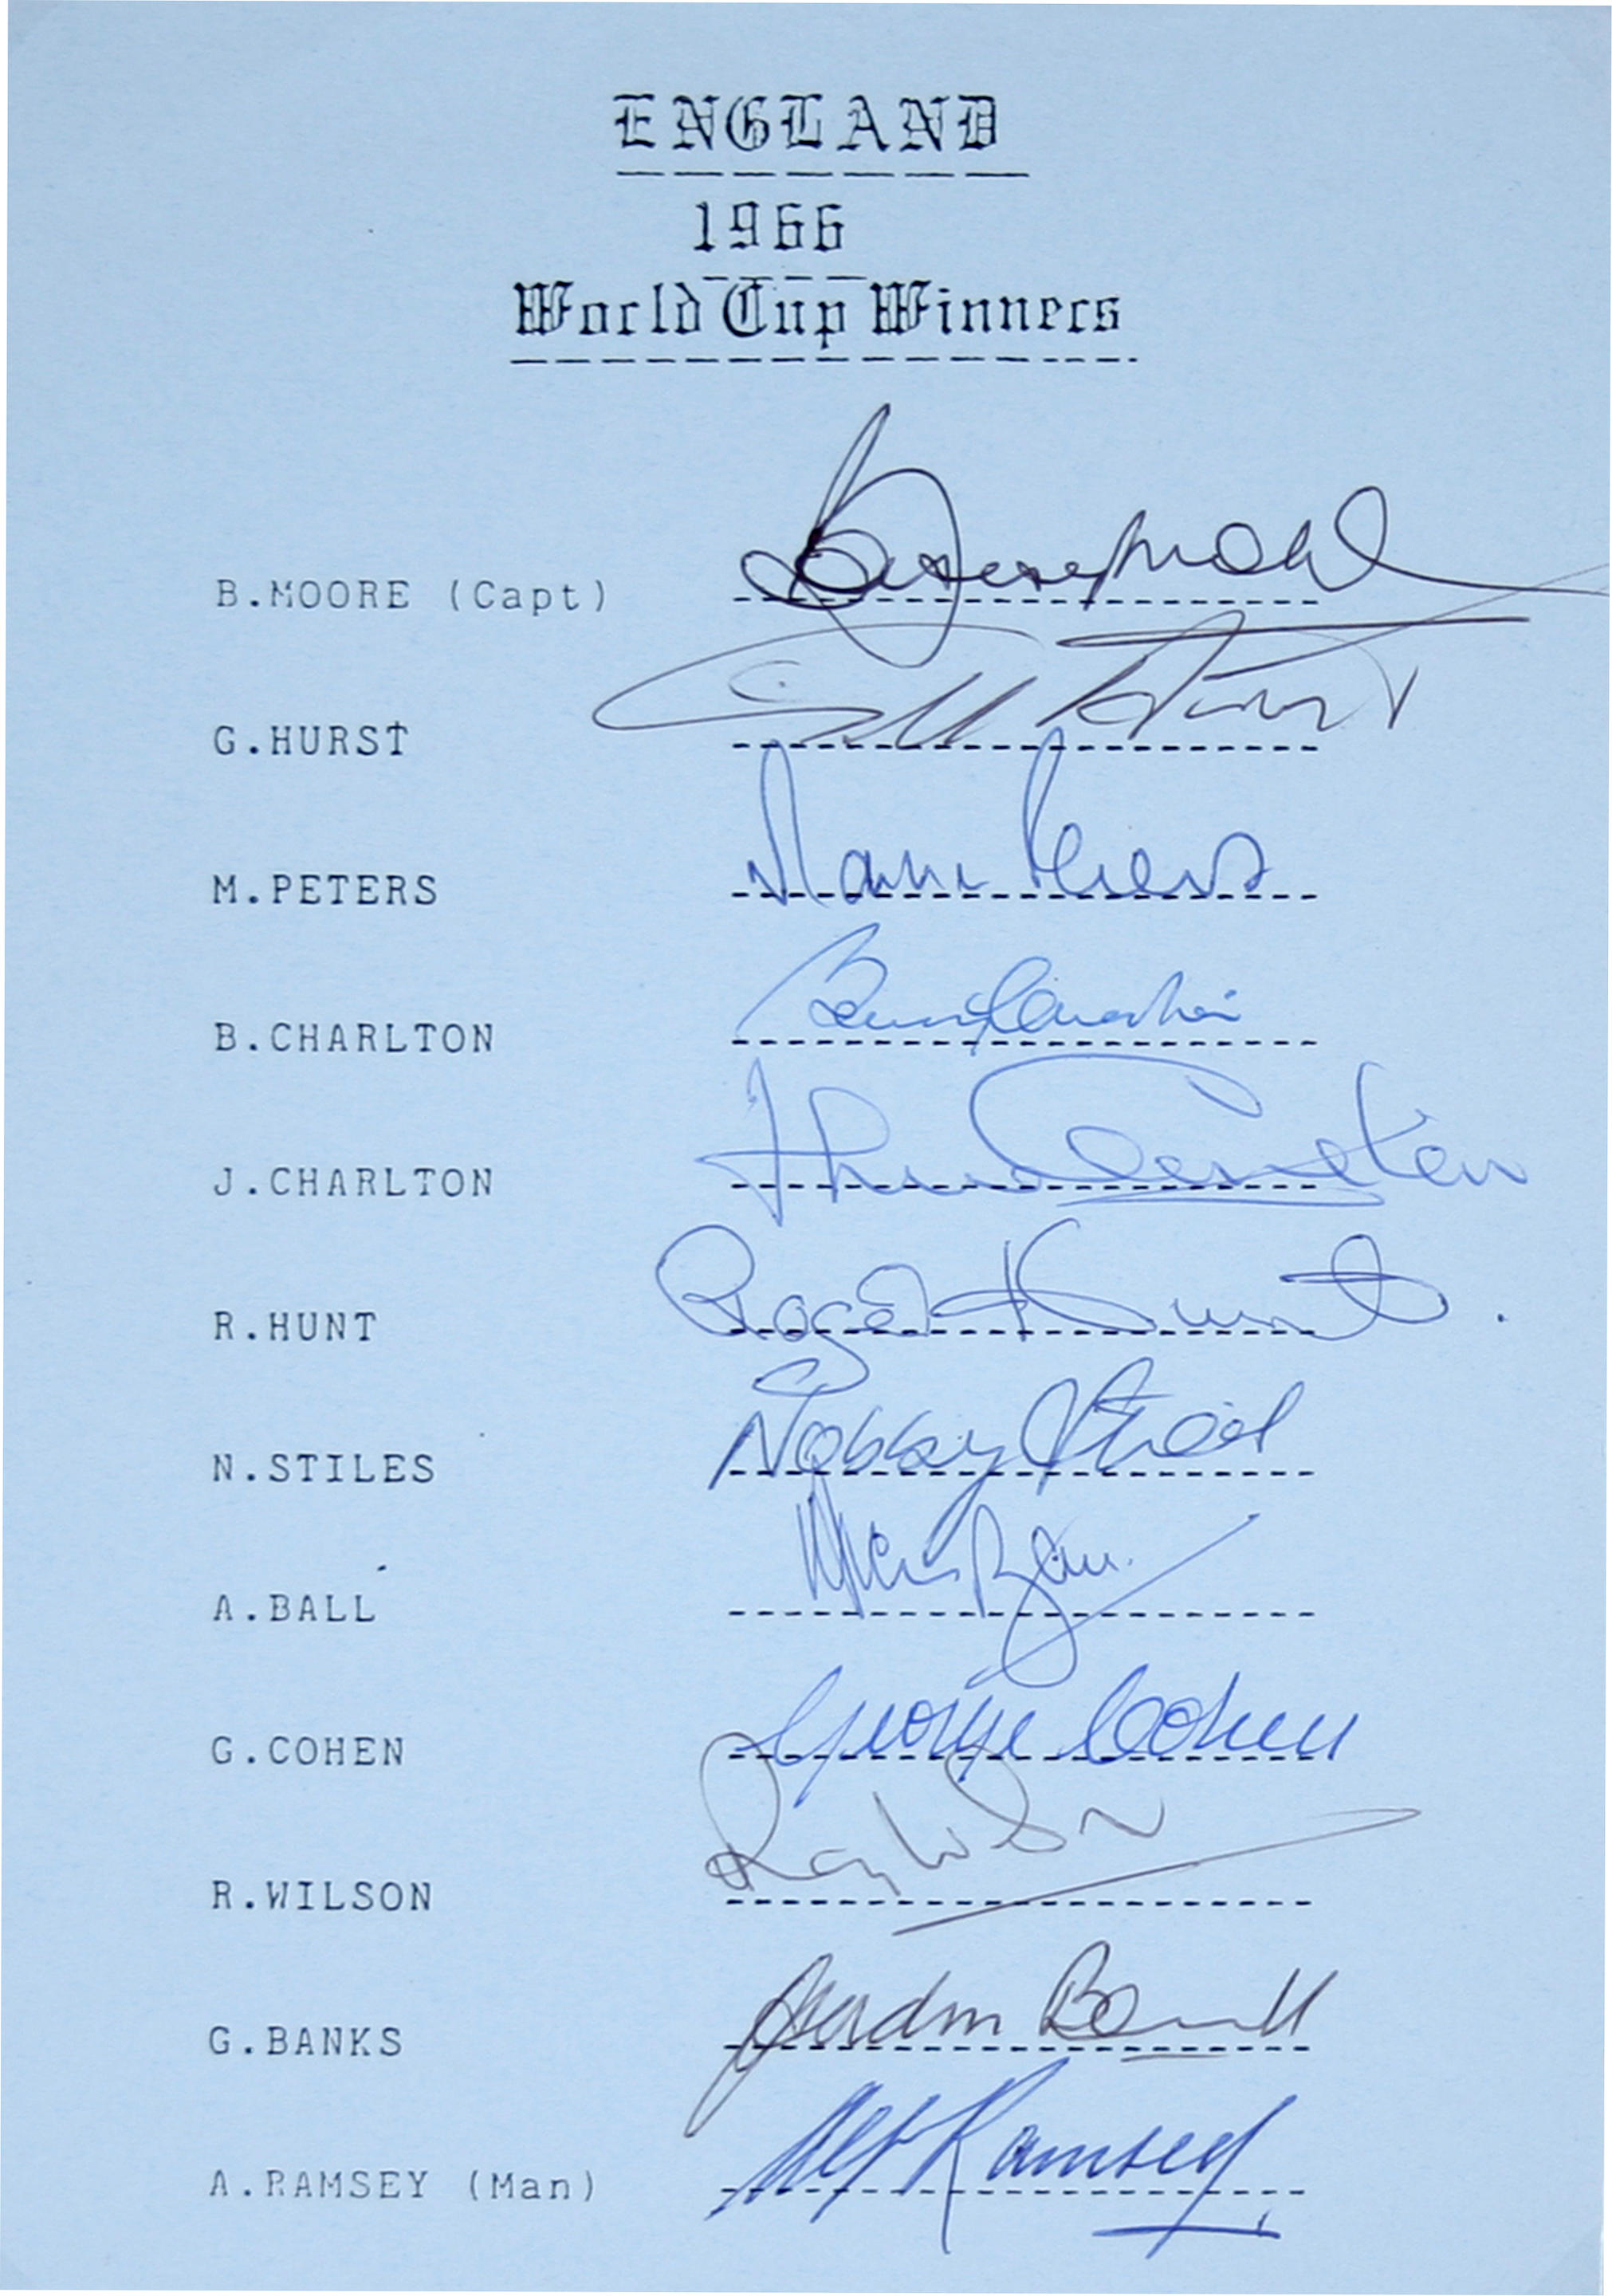 ENGLAND
1966
World Cup Winners
B.MOORE (Capt) Bobby Moore
G.HURST
M.PETERS Martin Peters
B.CHARLTON Bobby Charlton
J.CHARLTON
R.HUNT Roger Hunt
N.STILES Nobby Stiles
A.BALL Alan Ball
G.COHEN George Cohen
R.WILSON Ray Wilson
G.BANKS Gordon Banks
A.RAMSEY (Man) Alf Ramsey